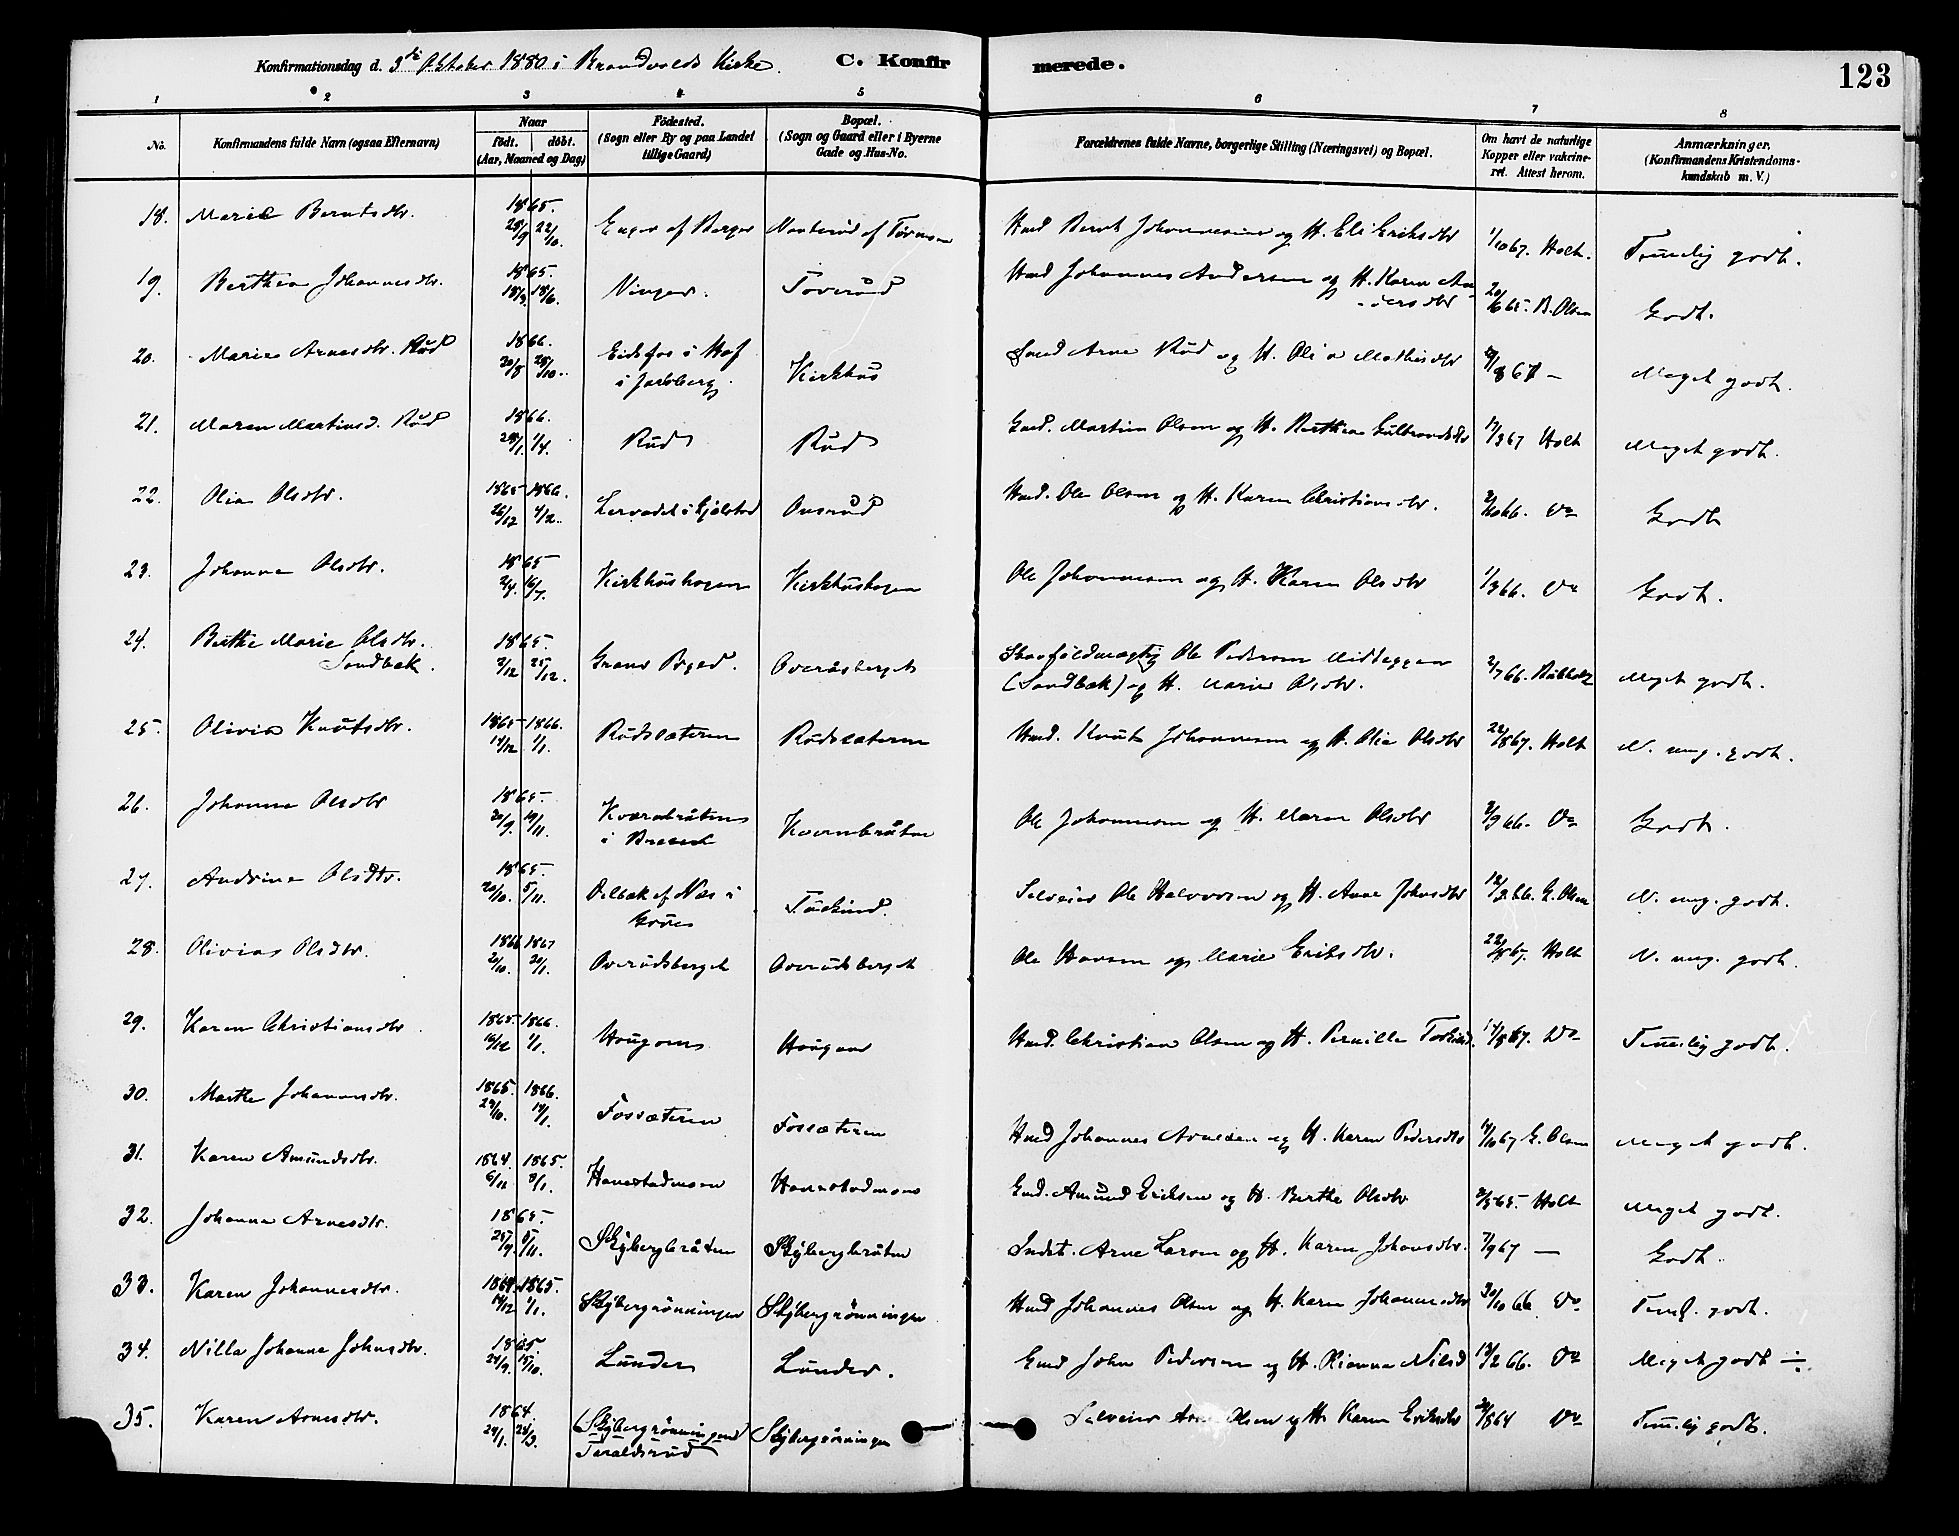 Konfirmationsdag d. 3die Oktober 1880 i Brandvolds Kirke. C. Konfirmerede. 123
1 2 3 4 5 6 7 8
No. Konfirmandens fulde Navn (ogsaa Efternavn) Naar födt. döbt. (Aar, Maaned og Dag) Födested. (Sogn eller By og paa Landet tillige Gaard) Bopæl. (Sogn og Gaard eller i Byerne Gade og Hus-No. Forældrenes fulde Navne, borgerlige Stilling (Næringsvei) og Bopæl. Om havt de naturlige Kopper eller vakcineret. Attest herom. Anmærkninger. (Konfirmandens Kristendomskundskab m. V.)
18. Marie Berntsdtr. 1865. 28/9 22/10. Enger af Berger Husb. Bernt Johannesen og H. Eli Eriksdtr 1/10 67. Holt. Temmelig godt.
19. Berthea Johannesdtr. 1865. 18/3. 18/6. Vinger. Toverud Husd Johannes Andersen og H. Karen Andersdtr 20/10 65. B. Olsen Godt.
20. Marie Arnesdtr. Rud 1866. 20/8 28/10. Eidsfos i Hof i Jarlsberg. Kirkhus Arne Rud og H. Olia Mathisdtr 67 — Meget godt.
21. Maren Martinsd. Rud 1866. 28/1. 1/4. Rud Rud Gmd. Martin Olsen og H. Berthea Gulbrandsdtr 17/3 67 Holt Meget godt.
22. Olia Olsdtr. 1865 1866. 26/12 4/2. i Gjölstad Ousrud Husd. Ole Olsen og H. Karen Christiansdtr. 2/10 66. Do Godt
23. Johanne Olsdtr. 1865 2/4. 16/7. Kirkhushagen Kirkhushagen Ole Johannesen og H. Karen Olsdtr 1/3 66. Do Godt.
24. Berthe Marie Olsdtr. Sandbæk. 1865. 2/12 25/12. Grans Pgjeld. Overudsberget Skovfuldmægtig Ole Pedersen Midteggen (Sandbæk) og H. Marie Olsdtr. 2/7 66. Meget godt.
25. Olivia Knutsdtr. 1865 1866. 14/12 1/1. Rudsæteren Rudsæteren Husd. Knut Johannesen og H. Olia Olsdtr 22/8 67. Holt N. mg. godt.
26. Johanne Olsdtr 1865. 20/9. 19/11. Kvernbråten i Kvernbråten Ole Johannesen og H. Maren Olsdtr 2/9 66. Do Godt.
27. Andrine Olsdtr. 1865. 20/10. 5/11. af Næs i Grue Selveier Ole Halvorsen og H. Anne Johnsdtr 18/2 66. G. Olsen N. mg. godt.
28. Olivia Olsdtr. 1866 1867 20/10. 20/1. Overudsberget Overudsberget Ole Hansen og Marie Eriksdtr. 22/8 67. Holt N. mg. godt.
29. Karen Christiansdtr 1865. 1866. 16/12 1/1. Haugom Husd. Christian Olsen og H. Pernille 17/8 67. Do Temmelig godt.
30. Marthe Johannesdtr. 1865. 1866. 29/10. 14/1. Fossæteren Fossæteren Husd Johannes Arnesen og H. Karen Pedersdtr 14/10 67 G. Olsen Meget godt.
31. Karen Amundsdtr. 1864. 1865. 6/11 8/1. Havestadmoen Havestadmoen Gmd. Amund Eriksen og H. Berthe Olsdtr 2/5 65. Holt Meget godt.
32. Johanne Arnesdtr. 1865. 25/9. 5/11. Skybergbråten Skybergbråten Indst. Arne Larsen og H. Karen Johansdtr. 7/9 67 — Godt.
33. Karen Johannesdtr. 1864. 1865. 14/12 1/1. Skybergrönningen Skybergrönningen Husd Johannes Olsen og H. Karen Johannesdtr 30/10 66 Do Teml. godt.
34. Nilla Johanne Johnsdtr. 1865. 24/9. 15/10. Lunder Lunder. Gmd John Pedersen og H. Rianna Nilsd 18/2 66. Do Meget godt ÷
35. Karen Arnesdtr. 1864. 24/1. 28/3. (Skybergrönningen) Taraldsrud Skybergrönningen Selveier Arne Olsen og H. Karen Eriksdtr 28/8 64 Do Temmelig godt.